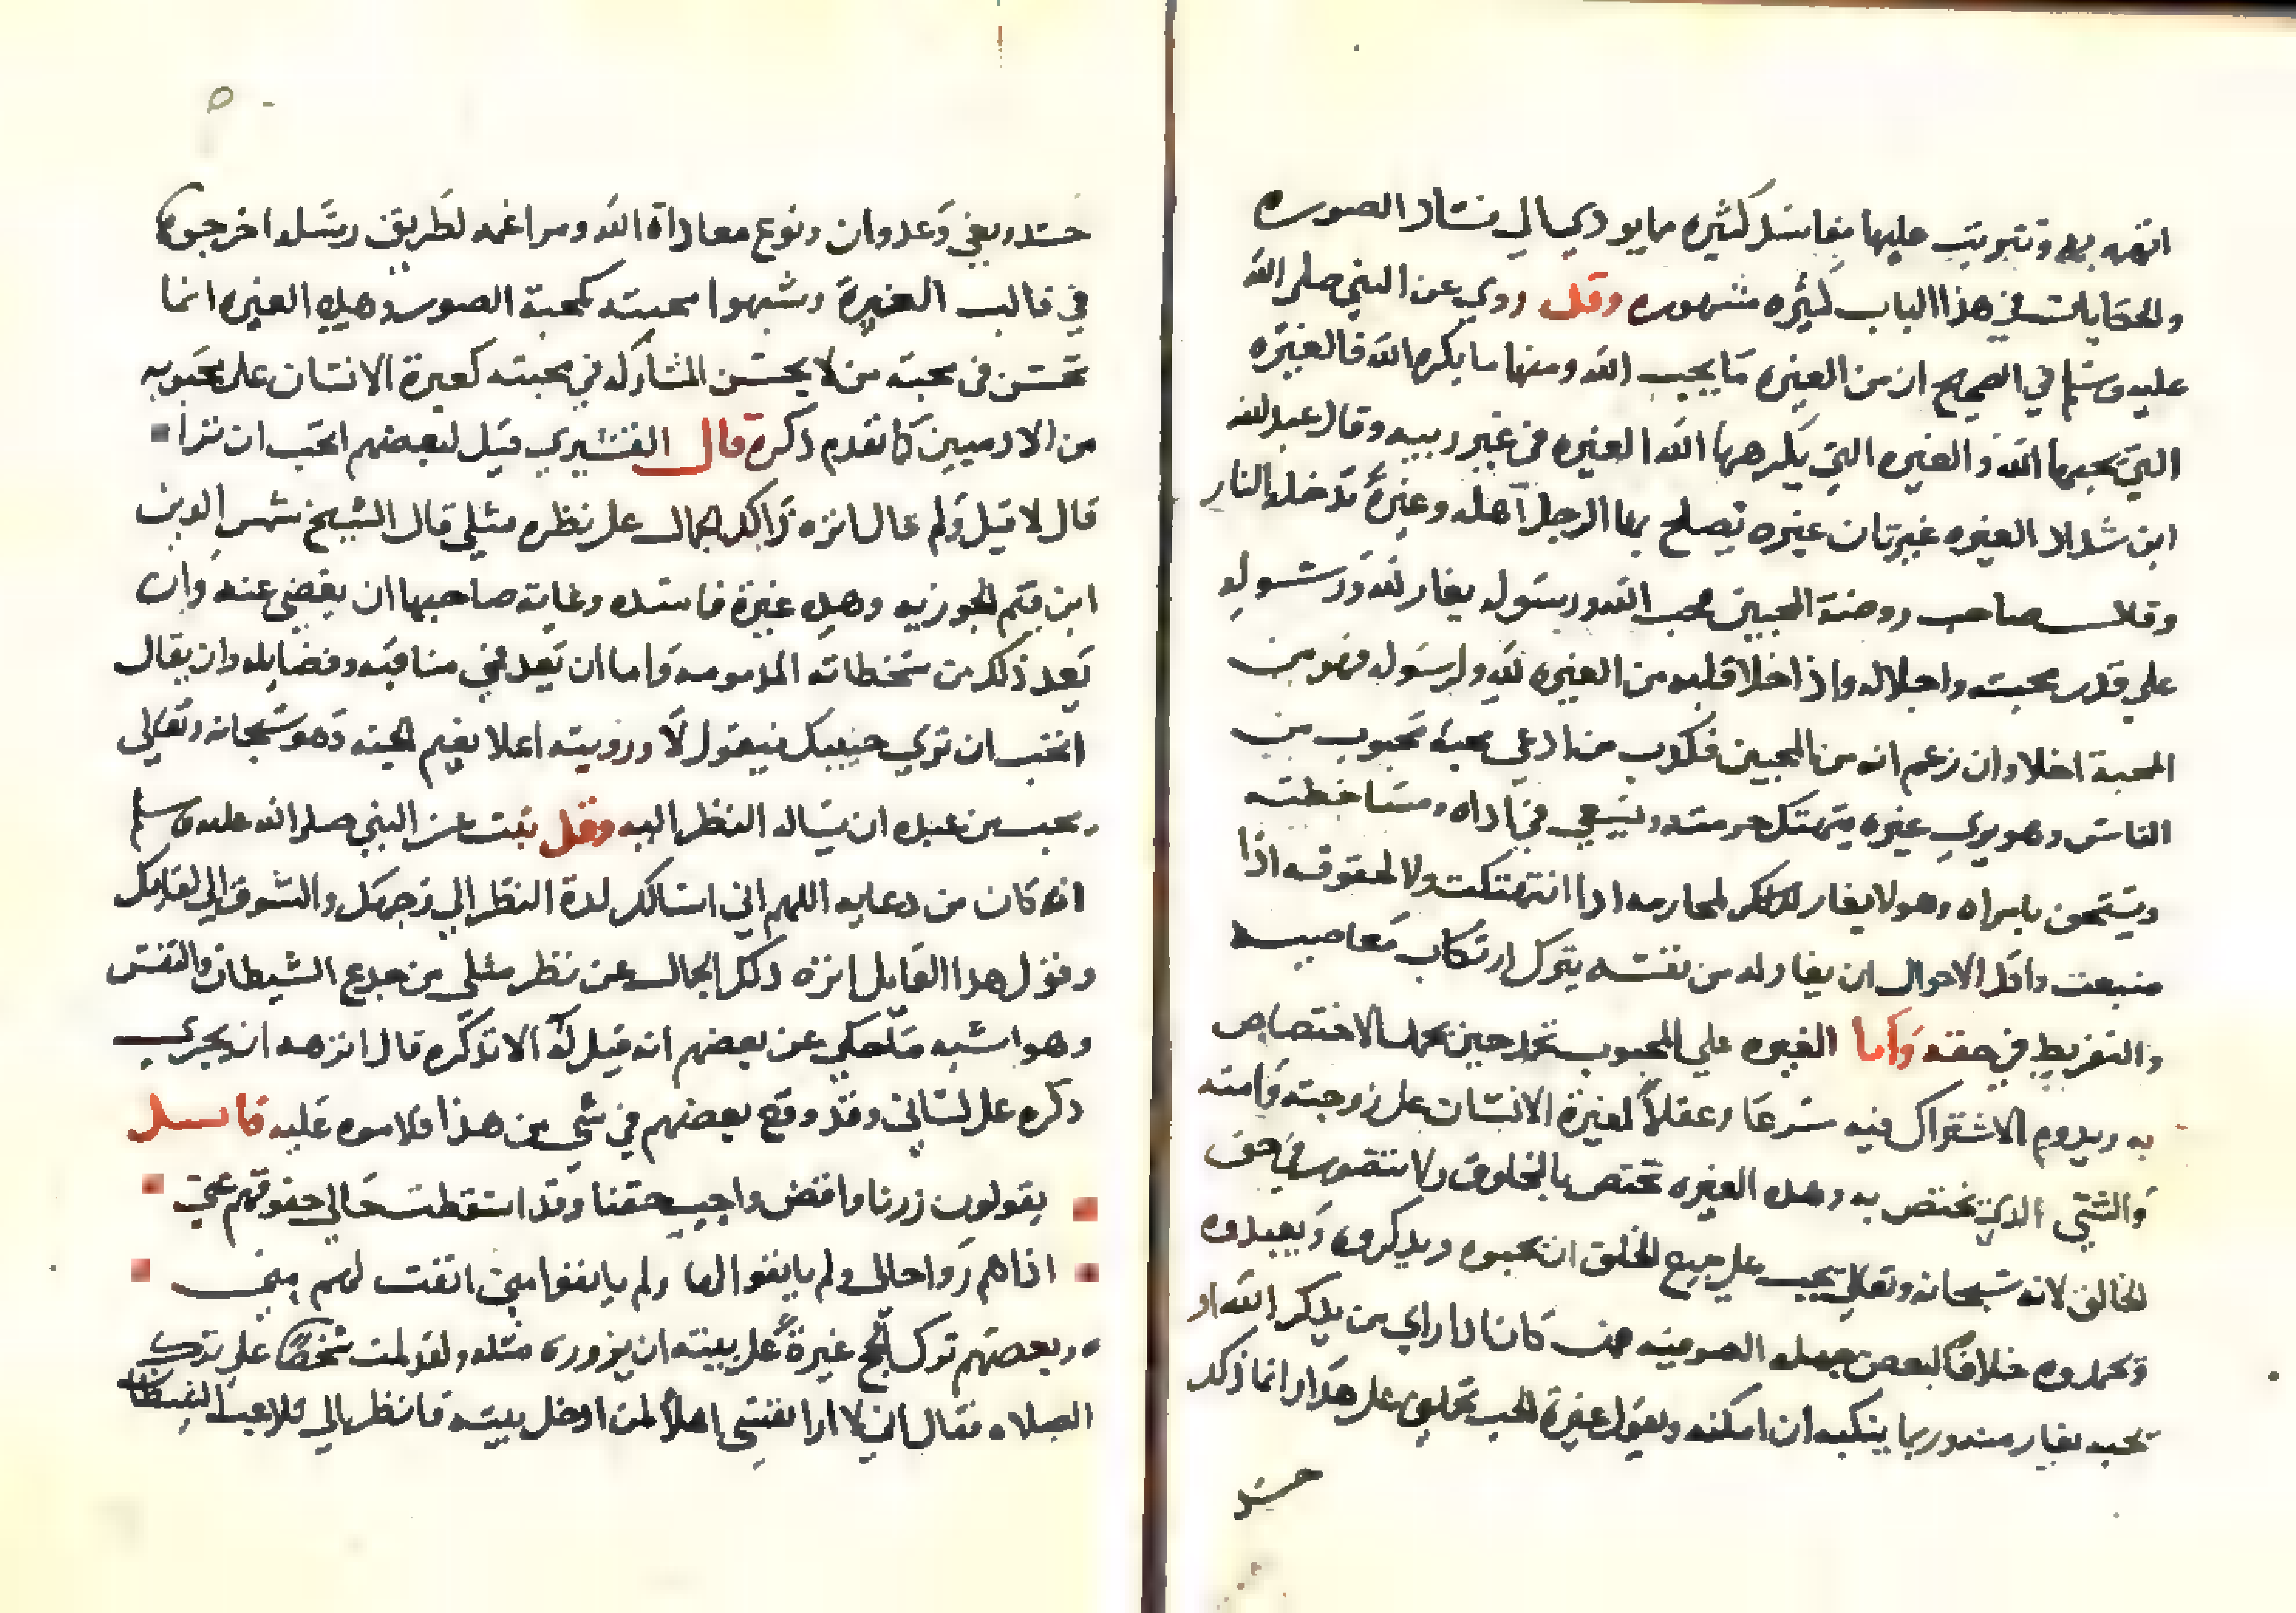 اتهمه به وتترتب عليها مفاسد كثيره مما يودي الي فساد الصوره
والحكايات في هذا الباب كثيره مشهوره وقد روي عن النبي صلى الله
عليه وسلم في الصحيح ان من الغيره ما يحب الله ومنها ما يكره الله فالغيره
التي يحبها الله والغيره التي يكرهها الله الغيره في غير ريبه وقال عبد الله
ابن شداد الغيره غيرتان غيره يصلح بها الرجل اهله وغيرة تدخله النار
وقال صاحب روضة المحبين محب الله ورسوله يغار لله ورسوله
علي قدر محبته واجلاله واذا خلا قلبه من الغيره لله ولرسوله فهو من
المحبة اخلا وان زعم انه من المحبين فكذب من ادعي محبة محبوب من
الناس وهو يري غيره ينتهك حرمته ويسعي في اذاه ومساخطته
ويستهين بامراه وهو لا يغار لذلك لمحارمه اذا انتهكت ولا لحقوقه اذا
ضيعت واقل الاحوال ان يغار له من نفسه بترك ارتكاب معاصيه
والتفريط في حقه وأما الغيره علي المحبوب تحمد حين يحمد الاختصاص
به ويذم الاشتراك فيه شرعا وعقلا كغيرة الانسان على زوجته وامته
والشي الذي يختص به وهذه الغيره تختص بالمخلوق ولا تتصور في حق
الخالق لانه سبحانه وتعالى يجب على جميع الخلق ان يحبوه ويذكروه ويعبدوه
ويحمدوه خلافا لبعض جهلة الصوفيه حيث كان اذا راي من يذكر الله او
يحبه يغار منه وربما يسكته ان امكنه ويقول غيرة الحب تحملني على هذا وانما ذلك
حسد
حسد وبغي وعدوان ونوع معاداة الله ومراغمه لطريق رسله اخرجوه
في قالب الغيرة وشبهوا محبته كمحبة الصور وهذه الغيره انما
تحسن في محبة من لا يحسن المشاركه في محبته كغيرة الانسان على محبوبه
من الادميين كما تقدم ذكره قال القشيري قيل لبعضهم اتحب ان تراه
قال لا قيل ولم قال انزه ذلك الجمال على نظره مثلي قال الشيخ شمس الدين
ابن قيم الجوزيه وهذه غيرة فاسده وغاية صاحبها ان يغضي عنه وان
يعد ذلك من شطحاته المذمومه واما ان يعد في مناقبه وفضايله وان يقال
اتحب ان تري حبيبك فيقول لا ورويته اعلا نعيم الجنه وهو سبحانه وتعالى
يحب من عبده ان يساله النظر اليه وقد ثبت عن النبي صلى الله عليه وسلم
انه كان من دعايه اللهم اني اسالك لذة النظر الي وجهك والشوق الي لقايك
وقول هذا القايل انزه ذلك الجمال عن نظر مثلي من خدع الشيطان والنفس
وهو اشبه ما حكي عن بعضهم انه قيل له الا تذكره قال انزهه ان يجري
ذكره على لساني وقد وقع بعضهم في شي من هذا فلاموه عليه فانشد
يقولون زرنا واقض واجب حقنا وقد اسقطت حالي حقوقهم عني
اذا هم راوا حالي ولم يانفوا لها ولم يانفوا مني انفت لهم مني
وبعضهم ترك الحج غيرة على بيته ان يزوره مثله ولقد لمت شخصا علي ترك
الصلاه فقال اني لا ارا نفسي اهلا لان ادخل بيته فانظر الي تلاعب الشيطان